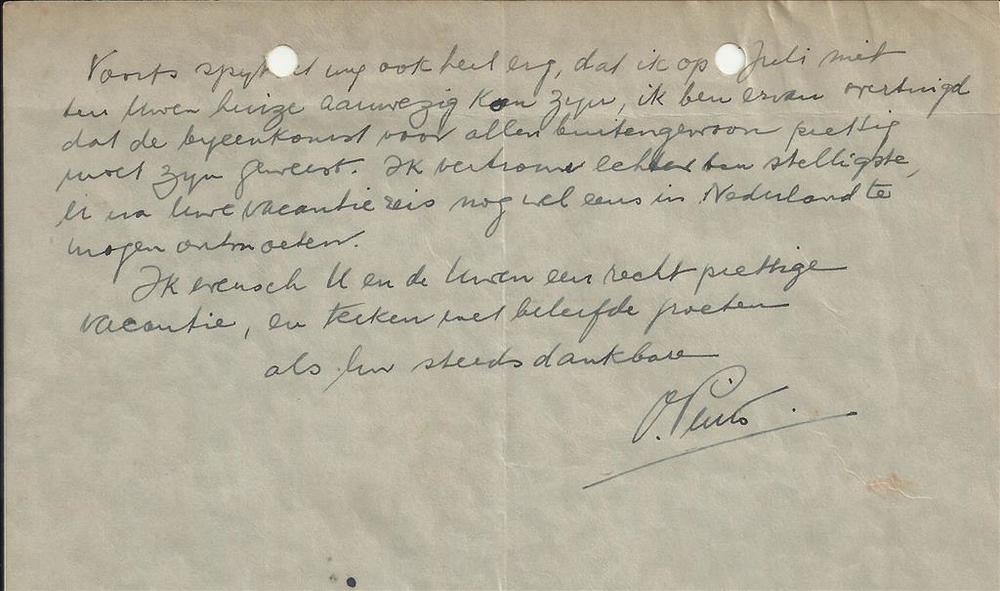 Voorts spijt het mij ook heel erg, dat ik op Juli niet
ten Uwen huize aanwezig kon zijn, ik ben ervan overtuigd
dat de bijeenkomst voor allen buitengewoon prettig
moet zijn geweest. Ik vertrouw echter ten stelligste,
U na Uwe vacantiereis nog wel eens in Nederland te
mogen ontmoeten.
Ik wensch U en de Uwen een recht prettige
vacantie, en teeken met beleefde groeten
als Uw steeds dankbare
O.